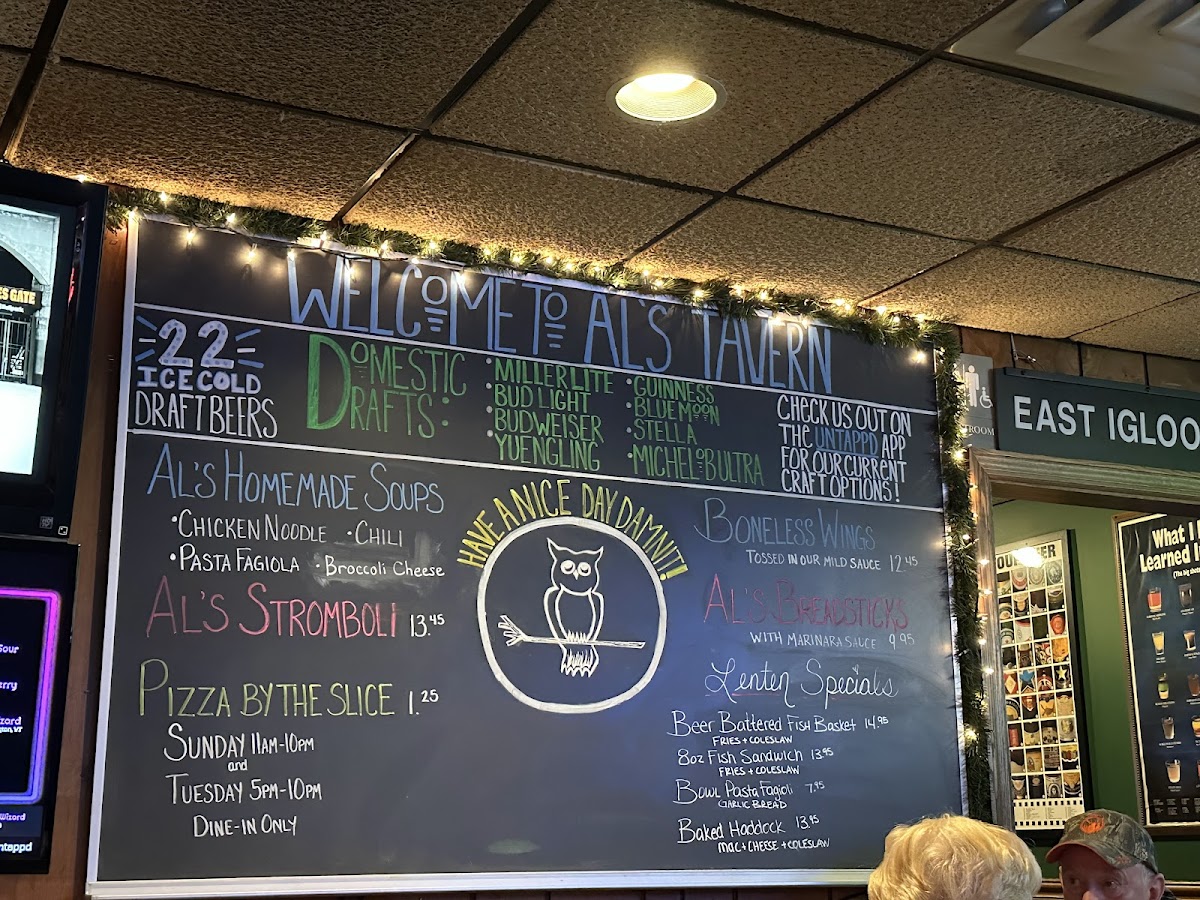 WELCOME TO AL'S TAVERN
22
ICE COLD
DRAFT BEERS
DOMESTIC
DRAFTS:
• MILLER LITE
• BUD LIGHT
• BUDWEISER
• YUENGLING
• GUINNESS
• BLUE MOON
• STELLA
• MICHELOB ULTRA
CHECK US OUT ON
THE UNTAPPD APP
FOR OUR CURRENT
CRAFT OPTIONS!
AL'S HOMEMADE SOUPS
• CHICKEN NOODLE • CHILI
• PASTA FAGIOLA • BROCCOLI CHEESE
AL'S STROMBOLI 13.45
PIZZA BY THE SLICE 1.25
SUNDAY 11AM-10PM
and
TUESDAY 5PM-10PM
DINE-IN ONLY
HAVE A NICE DAY DAMNIT!
BONELESS WINGS
TOSSED IN OUR MILD SAUCE 12.45
AL'S BREADSTICKS
WITH MARINARA SAUCE 9.95
Lenten Specials
Beer Battered Fish Basket 14.95
FRIES + COLESLAW
8oz Fish Sandwich 13.95
FRIES + COLESLAW
Bowl Pasta Fagioli 7.95
GARLIC BREAD
Baked Haddock 13.95
MAC + CHEESE + COLESLAW
EAST IGLOO
ROOM
What I
Learned
GATE
Wizard
ntappd